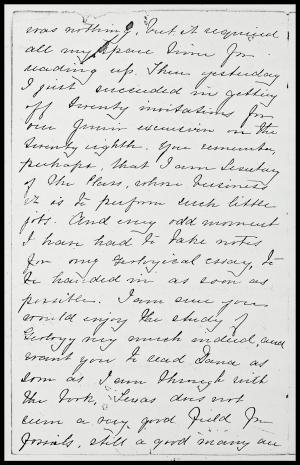 was nothing, but it required
all my spare time for
reading up. Then yesterday
I just succeeded in getting
off twenty invitations for
our Junior excursion on the
twenty eighth. You remember,
perhaps, that I am Secretary
of the Class, whose business
it is to perform such little
jobs. And every odd moment
I have had to take notes
for my Geological essay, to
be handed in as soon as
possible. I am sure you
would enjoy the study of
Geology very much indeed, and
want you to read Dana as
soon as I am through with
the book. Texas does not
seem a very good field for
fossils, still a good many are